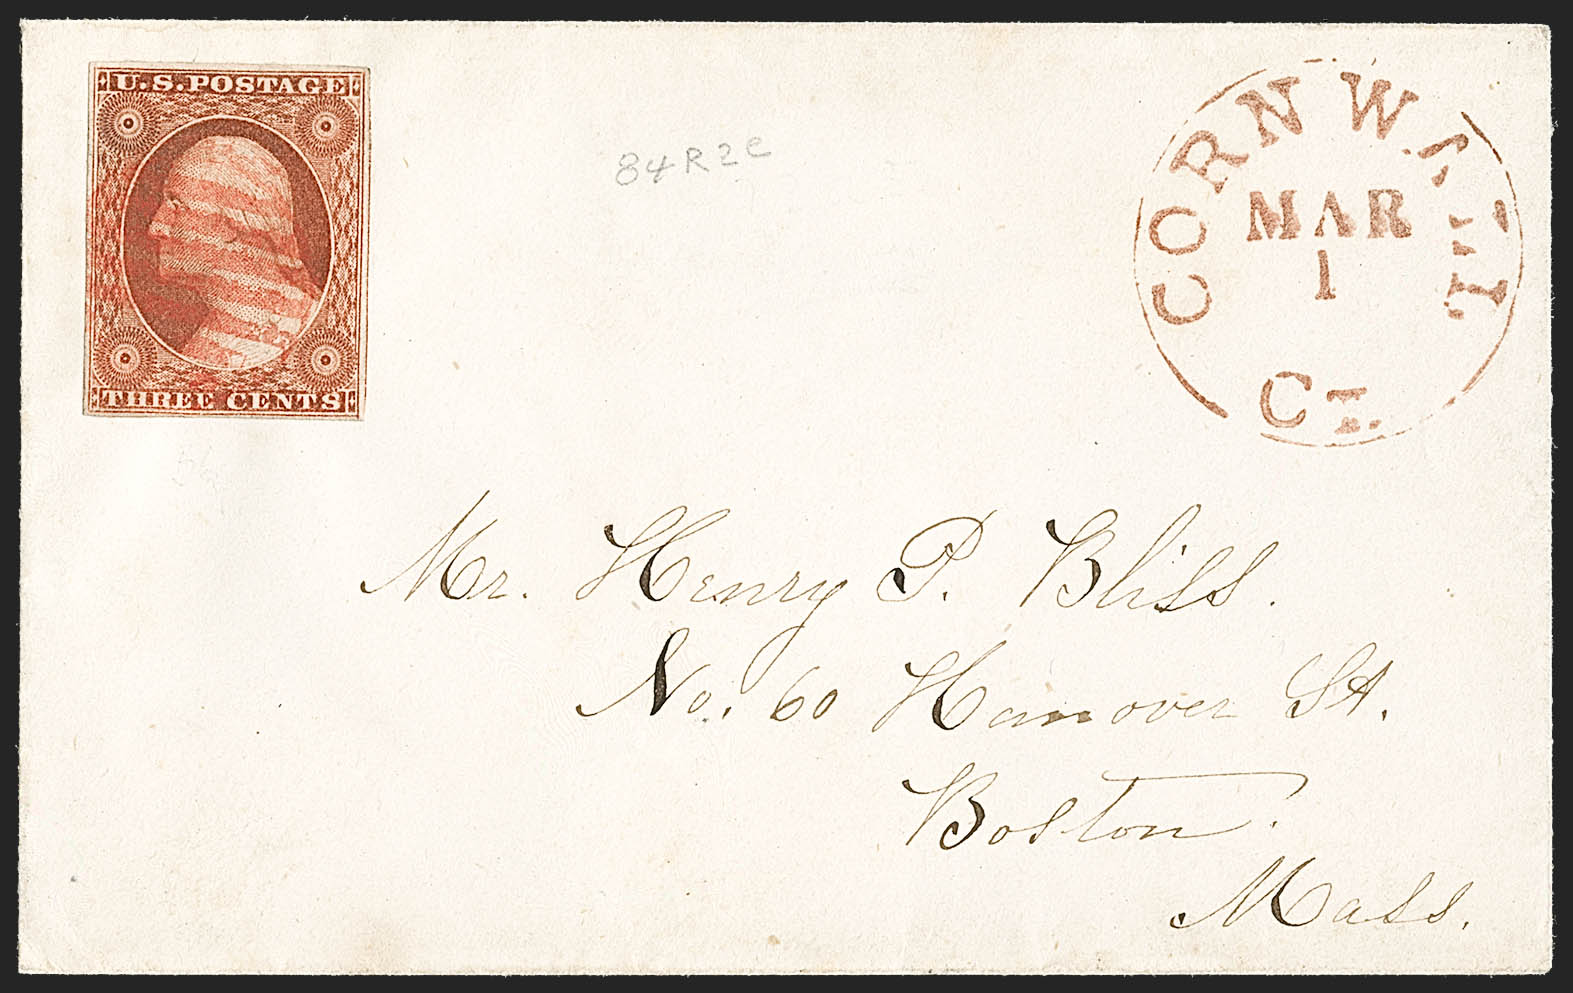 U.S. POSTAGE
THREE CENTS
84R2e
CORNWALL
MAR
1
CT.
Mr. Henry P. Bliss.
No. 60 Hanover St.
Boston.
Mass.